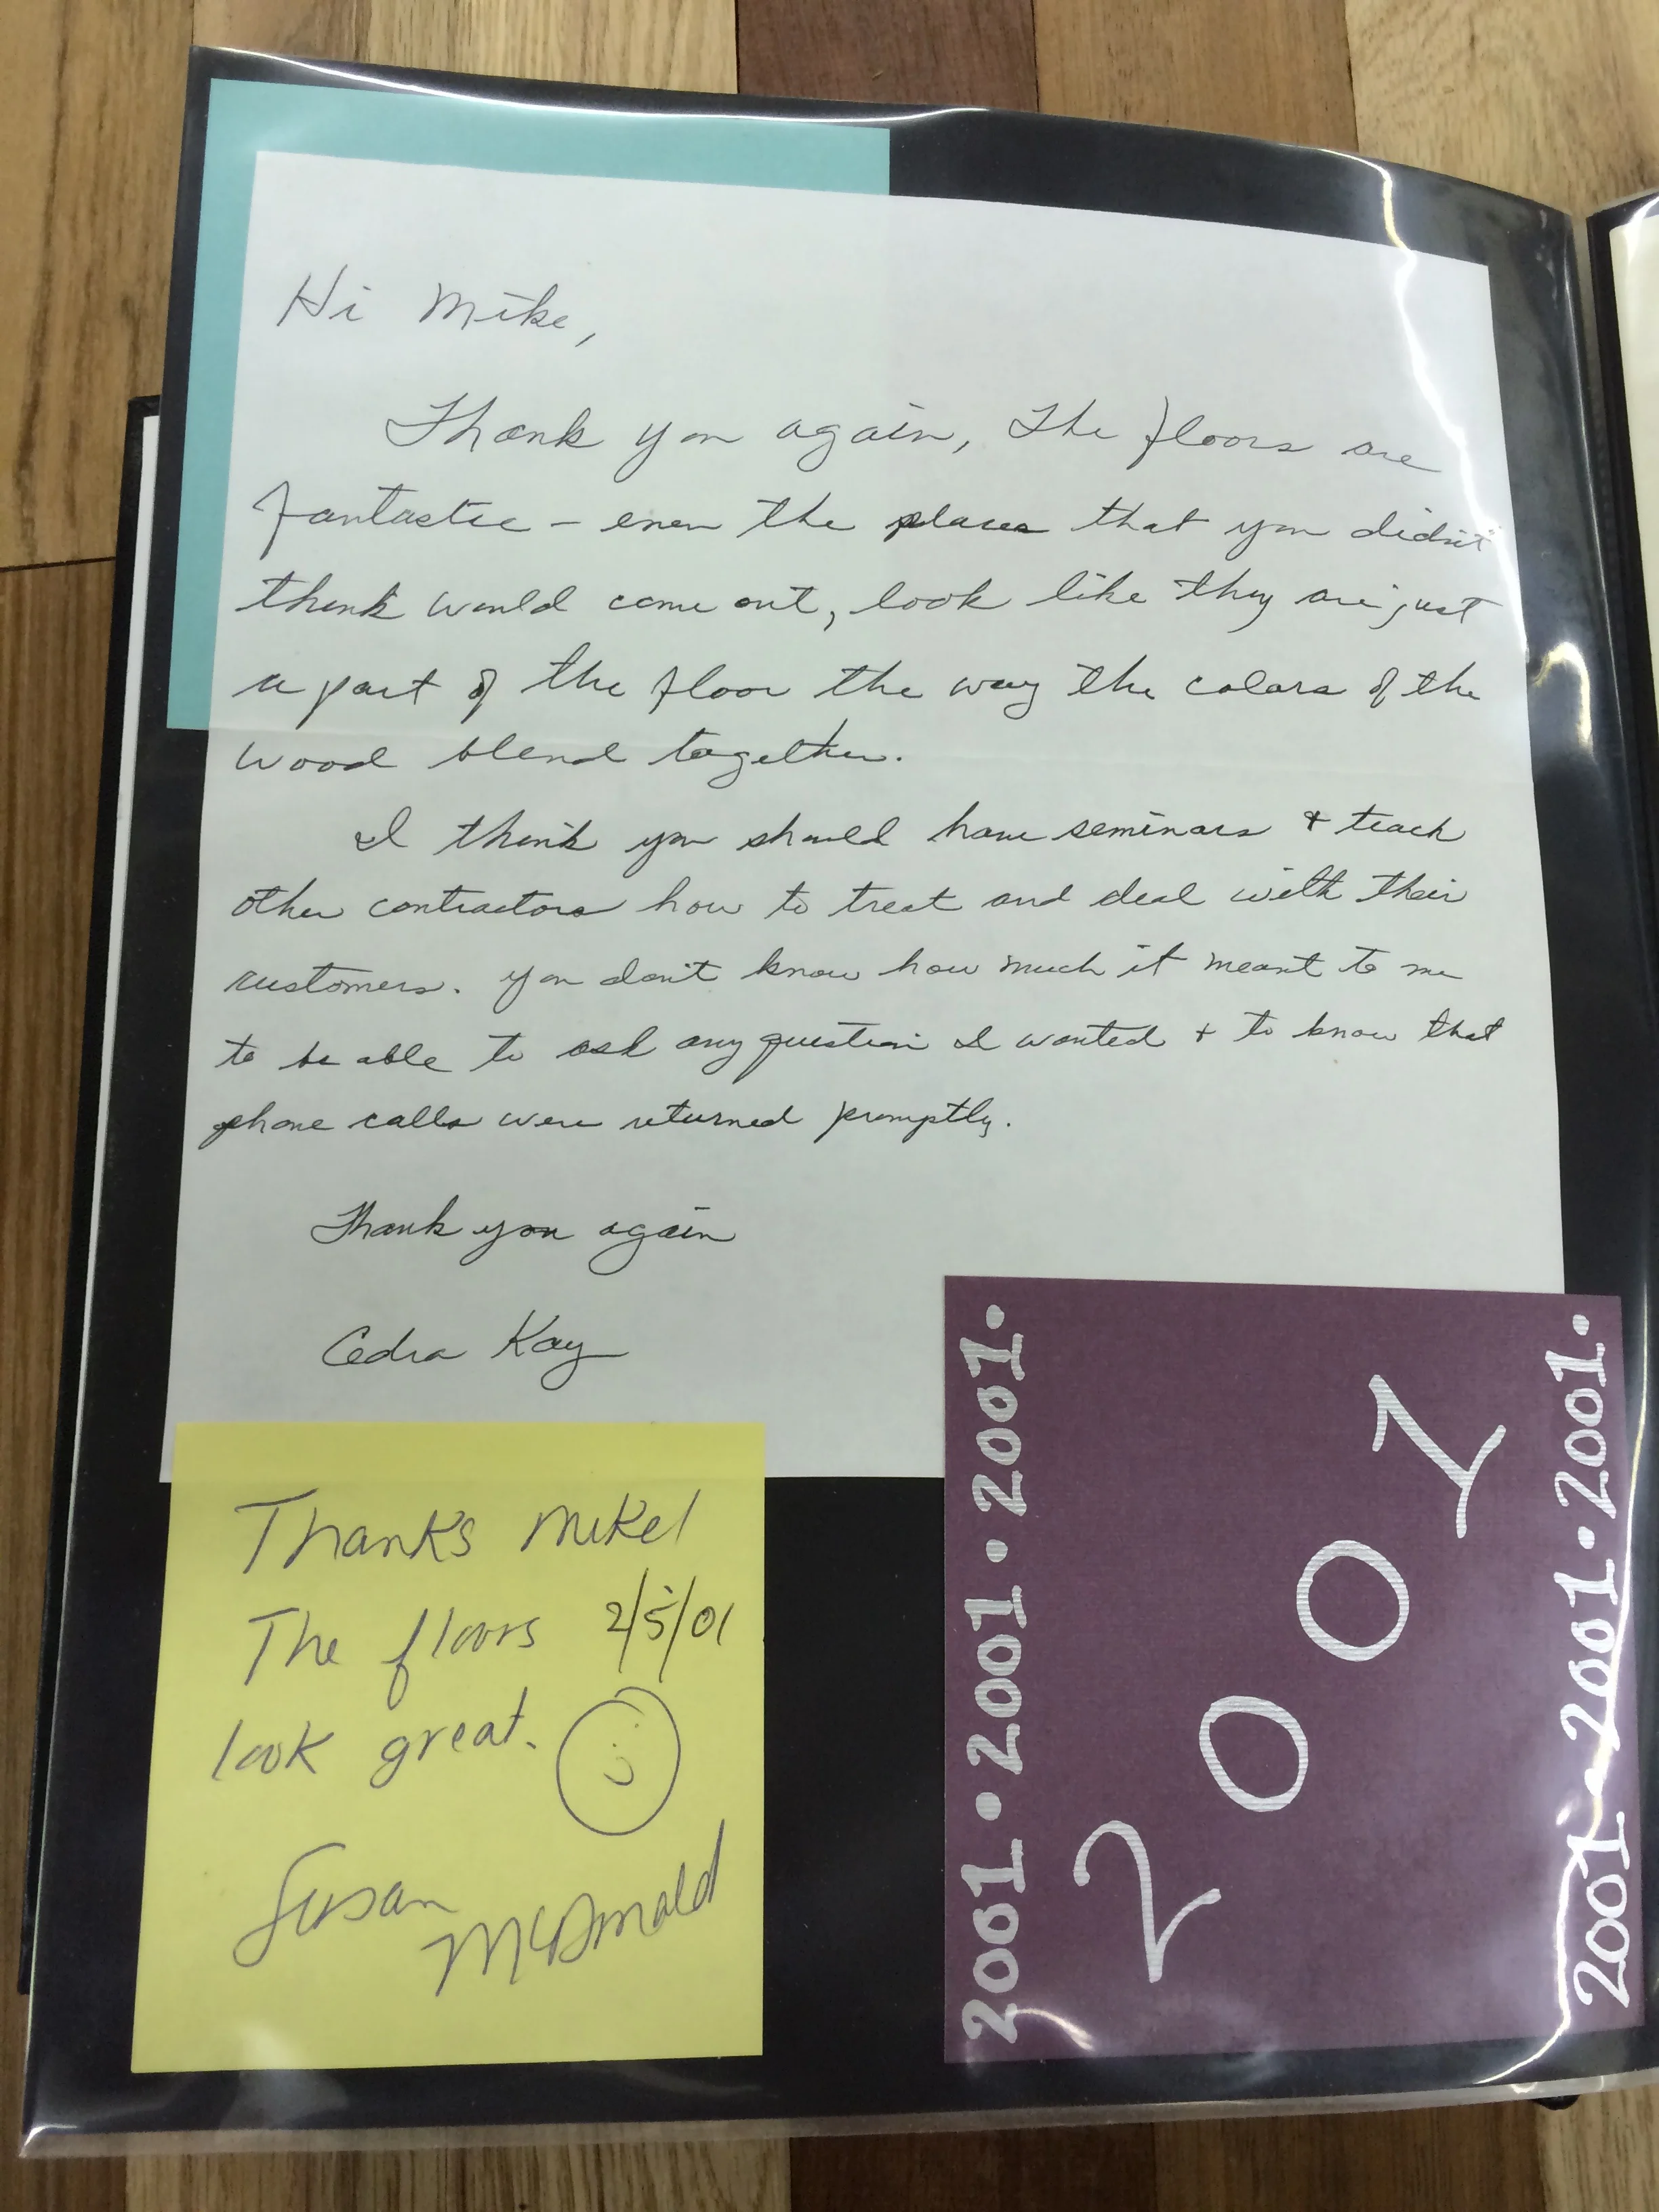 Hi Mike,
Thank you again, The floors are
fantastic - even the places that you didn't
think would come out, look like they are just
a part of the floor the way the colors of the
wood blend together.
I think you should have seminars + teach
other contractors how to treat and deal with their
customers. you don't know how much it meant to me
to be able to ask any question I wanted + to know that
phone calls were returned promptly.
Thank you again
Cedra Kay
Thanks Mike!
The floors 2/5/01
look great.
Susan
McDonald
2001 • 2001 • 2001 • 2001 •
2001
2001 • 2001 • 2001 • 2001 •